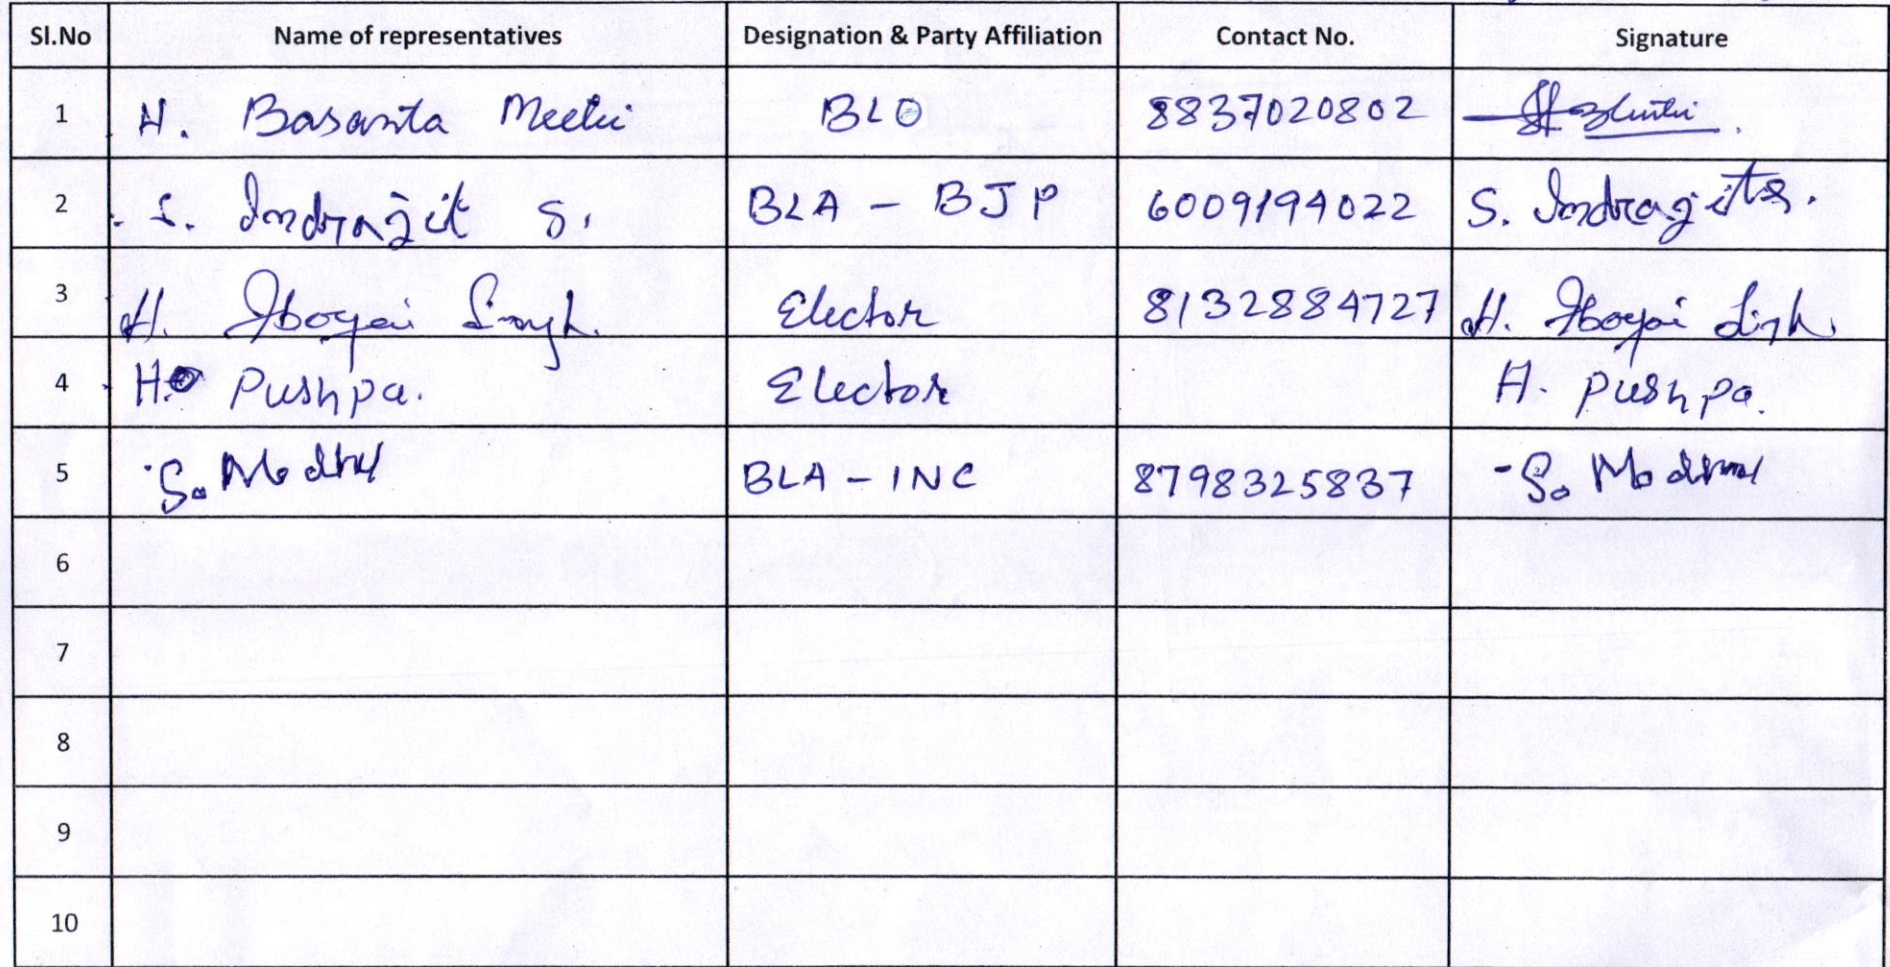 Sl.No Name of representatives Designation & Party Affiliation Contact No. Signature
1 H. Basanta Meetei BLO 8837020802
2 S. Indrajit S. BLA - BJP 6009194022 S. Indragit S.
3 H. Iboyai Singh. Elector 8132884727 H. Iboyai Singh.
4 H. Pushpa. Elector H. Pushpa.
5 S. BLA - INC 8798325837 S.
6
7
8
9
10